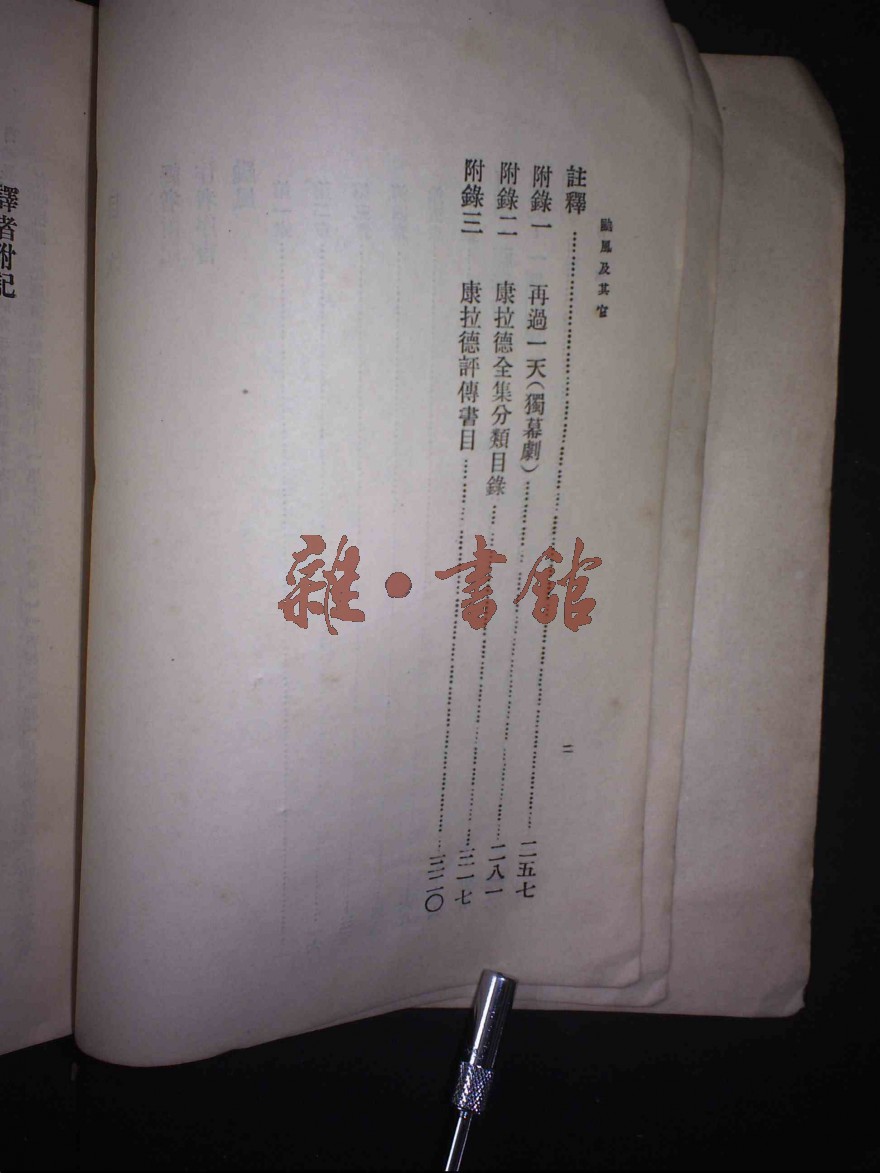 颱風及其它
二
註釋……二五七
附錄一 再過一天(獨幕劇)……二八一
附錄二 康拉德全集分類目錄……三一七
附錄三 康拉德評傳書目……三二〇
譯者附記
雜·書館